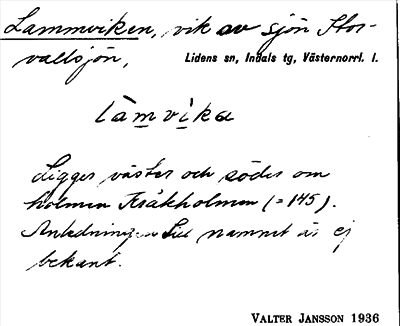 Lammviken, vik av sjön Stor-
vallsjön, Lidens sn, Indals tg, Västernorrl. l.
làmvika
Ligger väster och söder om
holmen Kråkholmen (=145).
Anledningen till namnet är ej
bekant.
VALTER JANSSON 1936